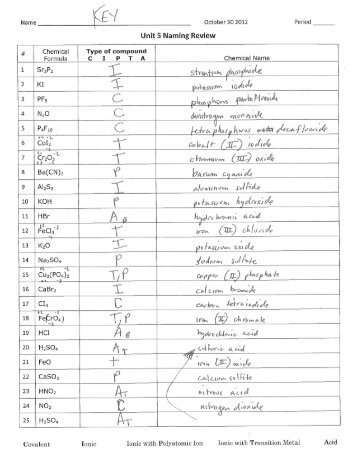 Name KEY October 30 2012 Period
Unit 5 Naming Review
# Chemical Formula Type of compound C I P T A Chemical Name
1 Sr₃P₂ I strontium phosphide
2 KI I potassium iodide
3 PF₅ C phosphorus pentafluoride
4 N₂O C dinitrogen monoxide
5 P₄F₁₀ C tetraphosphorus decafluoride
6 CoI₂ T cobalt (II) iodide
7 Cr₂O₃ T chromium (III) oxide
8 Ba(CN)₂ P barium cyanide
9 Al₂S₃ I aluminum sulfide
10 KOH P potassium hydroxide
11 HBr A B hydrobromic acid
12 FeCl₃ T iron (III) chloride
13 K₂O I potassium oxide
14 Na₂SO₄ P sodium sulfate
15 Cu₃(PO₄)₂ T,P copper (II) phosphate
16 CaBr₂ I calcium bromide
17 CI₄ C carbon tetraiodide
18 FeCrO₄ T,P iron (II) chromate
19 HCl A B hydrochloric acid
20 H₂SO₄ A T sulfuric acid
21 FeO T iron (II) oxide
22 CaSO₃ P calcium sulfite
23 HNO₂ A T nitrous acid
24 NO₂ C nitrogen dioxide
25 H₂SO₄ A T
Covalent Ionic Ionic with Polyatomic Ion Ionic with Transition Metal Acid